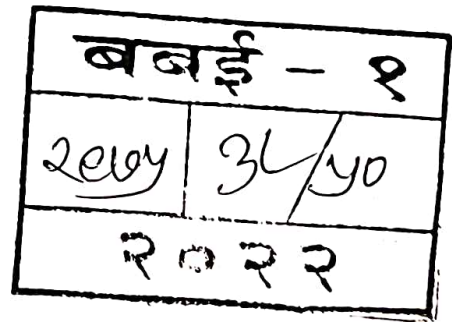 बबई - १
२९७५ ३८/५०
२०२२